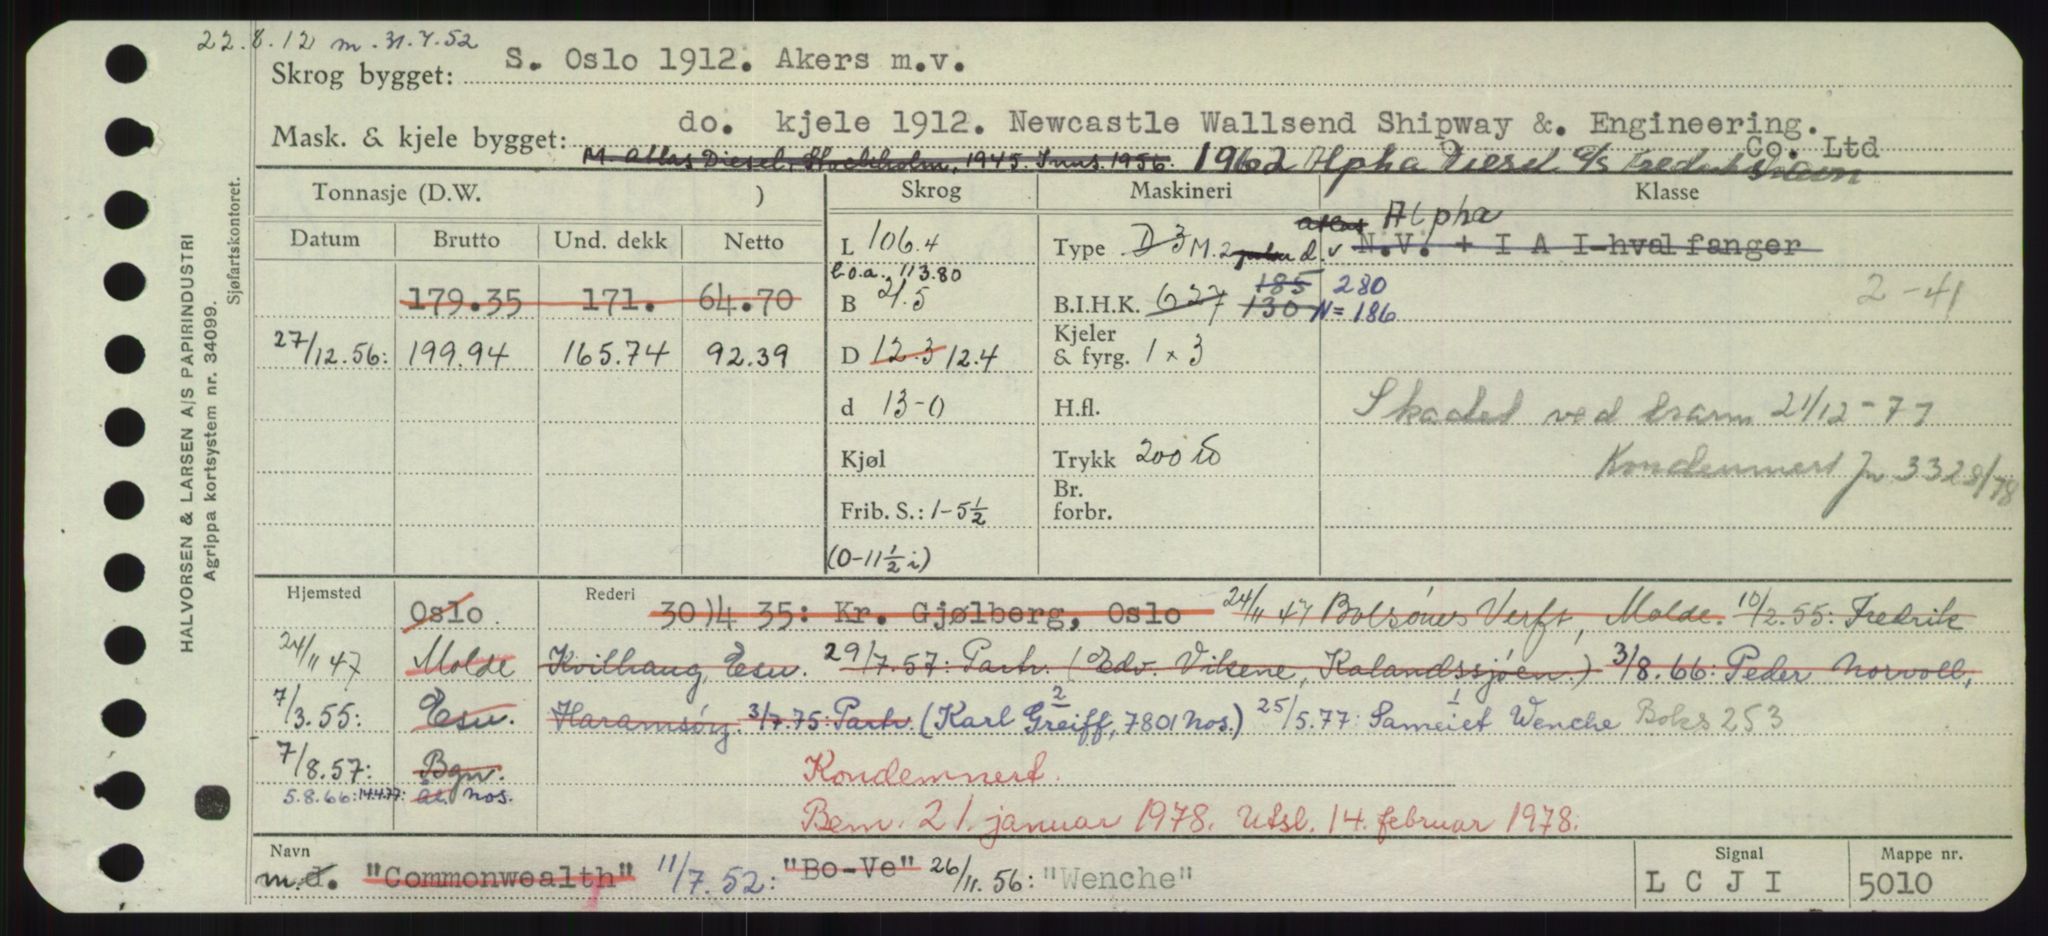 22.8.12 m. 31.7.52
Skrog bygget: S. Oslo 1912. Akers m.v.
Mask. & kjele bygget: do. kjele 1912. Newcastle Wallsend Shipway &. Engineering. Co. Ltd
M. Atlas Diesel, Stockholm, 1945. Inns. 1956. 1962 Alpha Diesel A/S
Tonnasje (D.W. )
Skrog
Maskineri
Klasse
Datum Brutto Und. dekk Netto
179.35 171. 64.70
27/12.56: 199.94 165.74 92.39
L 106.4
l.o.a. 113.80
B 21.5
D 12.3 12.4
d 13-0
Kjøl
Frib. S.: 1-5½
(0-11½ i)
Atlas Alpha
Type D 3 M. 2 d.v
B.I.H.K. 627 185 280
130 N= 186
Kjeler
& fyrg. 1 x 3
H.fl.
Trykk 200 lb
Br.
forbr.
N.V. + I A I-hvalfanger
2-41
Skadet ved brann 21/12-77
Kondemnert jn 3328/78
Hjemsted Oslo
24/11 47 Molde
7/3.55: Esu.
7/8.57: Bgn.
5.8.66: 14.4.77: Ål. Nos.
Rederi 30)4 35: Kr. Gjølberg, Oslo 24/11 47 Bolsönes Verft, Molde. 10/2.55: Fredrik
Kvilhaug, Esu. 29/7.57: Partr. (Edv. Viksne, Kalandssjöen.) 3/8.66: Peder Norvoll,
Haramsöy. 3/7.75: Partr. (Karl Greiff, 7801 Nos.) 2 25/5.77: Sameiet Wenche 1 Boks 253
Kondemnert.
Bem. 21. januar 1978. Utsl. 14. februar 1978.
Navn
m.d. "Commonwealth" 11/7.52: "Bo-Ve" 26/11.56: "Wenche"
Signal
L C J I
Mappe nr.
5010
HALVORSEN & LARSEN A/S PAPIRINDUSTRI
Agrippa kortsystem nr. 34099.
Sjøfartskontoret.